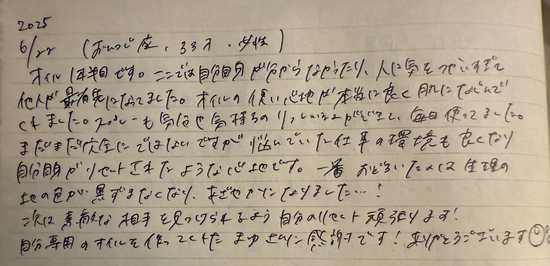 2025
6/22 (おひつじ座、33才・女性)
オイル1年半目です。ここでは自分自身が分からなかったり、人に気をつかいすぎて
他人が最優先になってました。オイルの使い心地が本当に良く肌になじんで
くれました。スプレーも気分や気持ちの 毎日使ってました。
まだまだ完全にではないですが悩んでいた仕事の環境も良くなり
自分自身がリセットされたような心地です。一番おどろいたのは生理の
血の色が黒ずまなくなり、あざやかになりました…!
次は素敵な相手を見つけられるよう自分のリセット頑張ります!
自分専用のオイルを作ってくださった まゆさんに感謝です!ありがとうございます